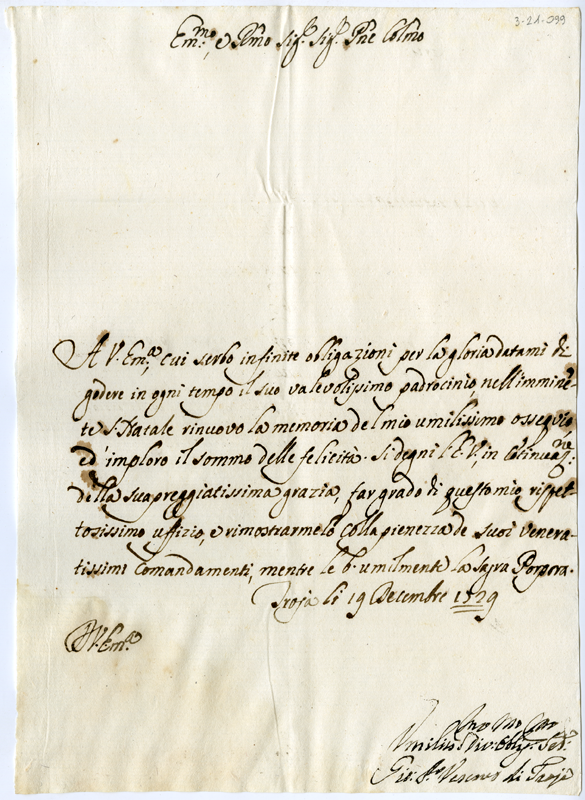 3-21-099
Em.mo, e Rmo Sig.r Sig.r Pne Colmo
A V. Em.a, cui serbo infinite obligazioni per la gloria datami di
godere in ogni tempo il suo valevolissimo padrocinio, nell'imminẽ
te S. Natale rinuovo la memoria del mio umilissimo ossequio
ed' imploro il sommo delle felicità. Si degni l'E.V., in cõtinuaz.ne
della sua preggiatissima grazia, far grado di questo mio rispet-
tosissimo uffizio, e rimostrarmelo colla pienezza de suoi venera-
tissimi comandamenti, mentre le b. umilmente la sagra Porpora.
Troja li 19 Decembre 1729
D V. Em.a
Umiliss. Div. Obligr. Ser.
Gio. Vescovo di Troja